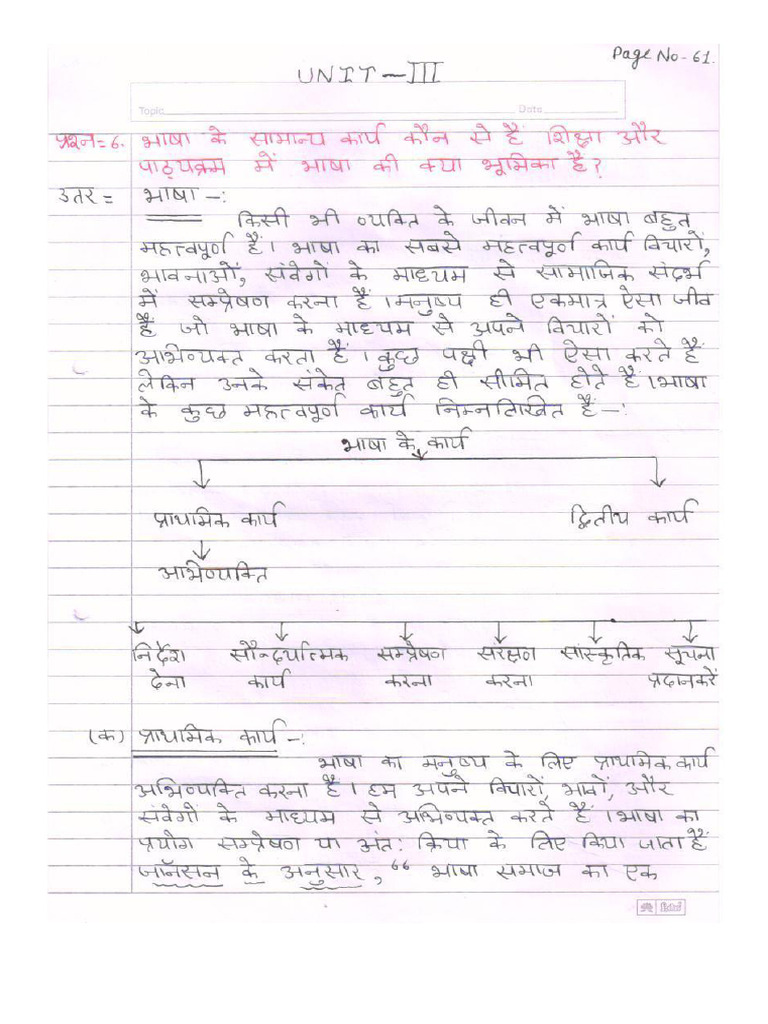 Page No-61.
UNIT-III
Topic
Date
प्रश्न=6. भाषा के सामान्य कार्य कौन से हैं। शिक्षा और
पाठ्यक्रम में भाषा की क्या भूमिका है?
उतर= भाषा -:
किसी भी व्यक्ति के जीवन में भाषा बहुत
महत्वपूर्ण हैं। भाषा का सबसे महत्वपूर्ण कार्य विचारों,
भावनाओं, संवेगों के माध्यम से सामाजिक संदर्भ
में सम्प्रेषण करना हैं। मनुष्य ही एकमात्र ऐसा जीव
हैं जो भाषा के माध्यम से अपने विचारों को
अभिव्यक्त करता हैं। कुछ पक्षी भी ऐसा करते हैं
लेकिन उनके संकेत बहुत ही सीमित होते हैं। भाषा
के कुछ महत्वपूर्ण कार्य निम्नलिखित हैं-:
भाषा के कार्य
प्राथमिक कार्य द्वितीय कार्य
अभिव्यक्ति
निर्देश सौन्दर्यात्मक सम्प्रेषण संरक्षण सांस्कृतिक सूचना
देना कार्य करना करना प्रदान करें
(क) प्राथमिक कार्य -:
भाषा का मनुष्य के लिए प्राथमिक कार्य
अभिव्यक्ति करना हैं। हम अपने विचारों, भावों, और
संवेगों के माध्यम से अभिव्यक्त करते हैं। भाषा का
प्रयोग सम्प्रेषण या अंत: क्रिया के लिए किया जाता हैं
जॉनसन के अनुसार, “ भाषा समाज का एक